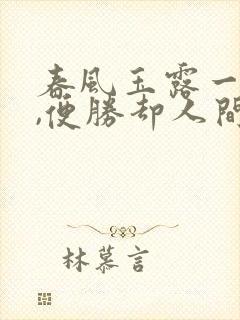 春風玉露一
,便勝卻人間
林慕言